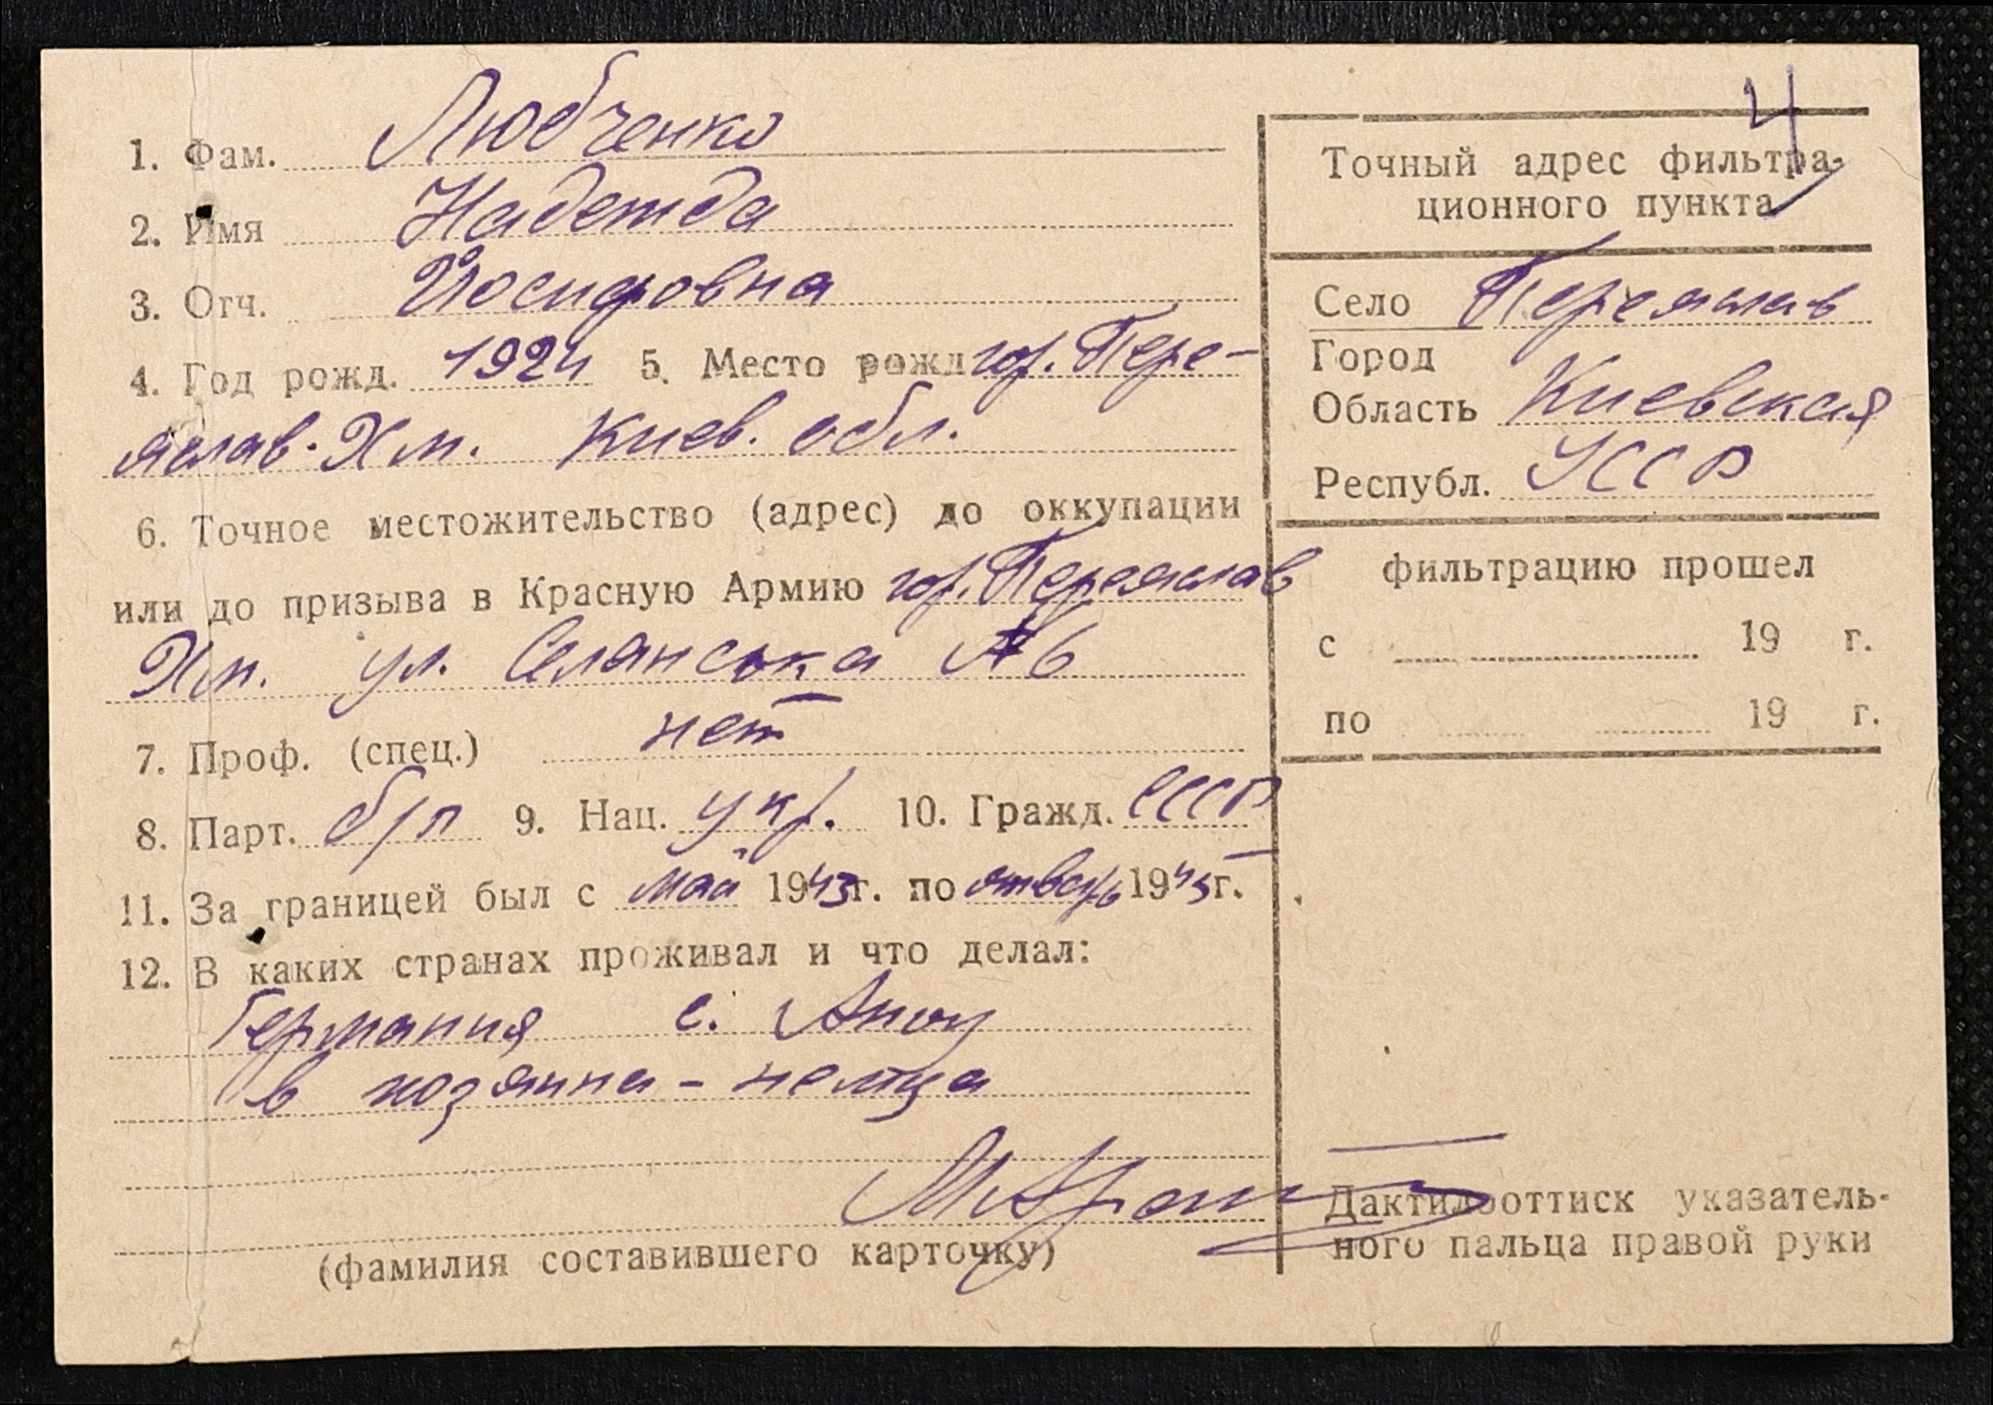 1. Фам. Любченко
2. Имя Надежда
3. Отч. Йосифовна
4. Год рожд. 1924 5. Место рожд гор. Пере-
яслав-Хм. Киев. обл.
6. Точное местожительство (адрес) до оккупации
или до призыва в Красную Армию гор. Переяслав
Хм. ул. Селянська №6
7. Проф. (спец.) нет
8. Парт. б/п 9. Нац. укр. 10. Гражд. СССР
11. За границей был с май 1943г. по 1945г.
12. В каких странах проживал и что делал:
Германия с.
в хозяина-немца
(фамилия составившего карточку)
Ч
Точный адрес фильтра-
ционного пункта
Село Переяслав
Город
Область Киевская
Республ. УССР
фильтрацию прошел
с 19 г.
по 19 г.
Дактилооттиск указатель-
ного пальца правой руки